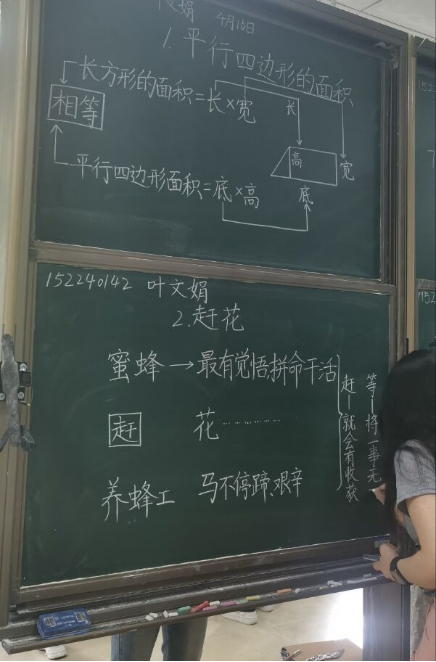 文娟 4月16日
1.平行四边形的面积
长方形的面积=长×宽
长
相等
高
宽
平行四边形面积=底×高
底
152240142 叶文娟
2.赶花
蜜蜂→最有觉悟,拼命干活
赶 花……
养蜂工 马不停蹄、艰辛
赶—就会有收获
等—将一事无